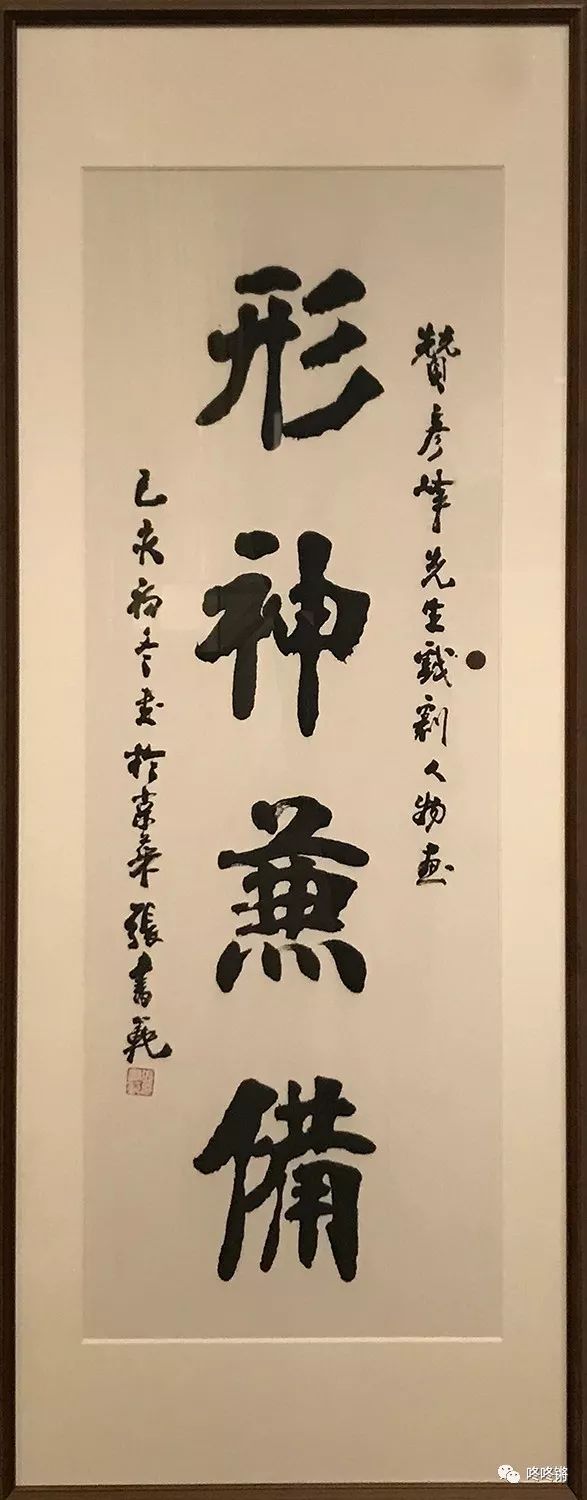 贊彥峰先生戲劇人物畫
形神兼備
己亥初冬書於京華張書範
咚咚锵